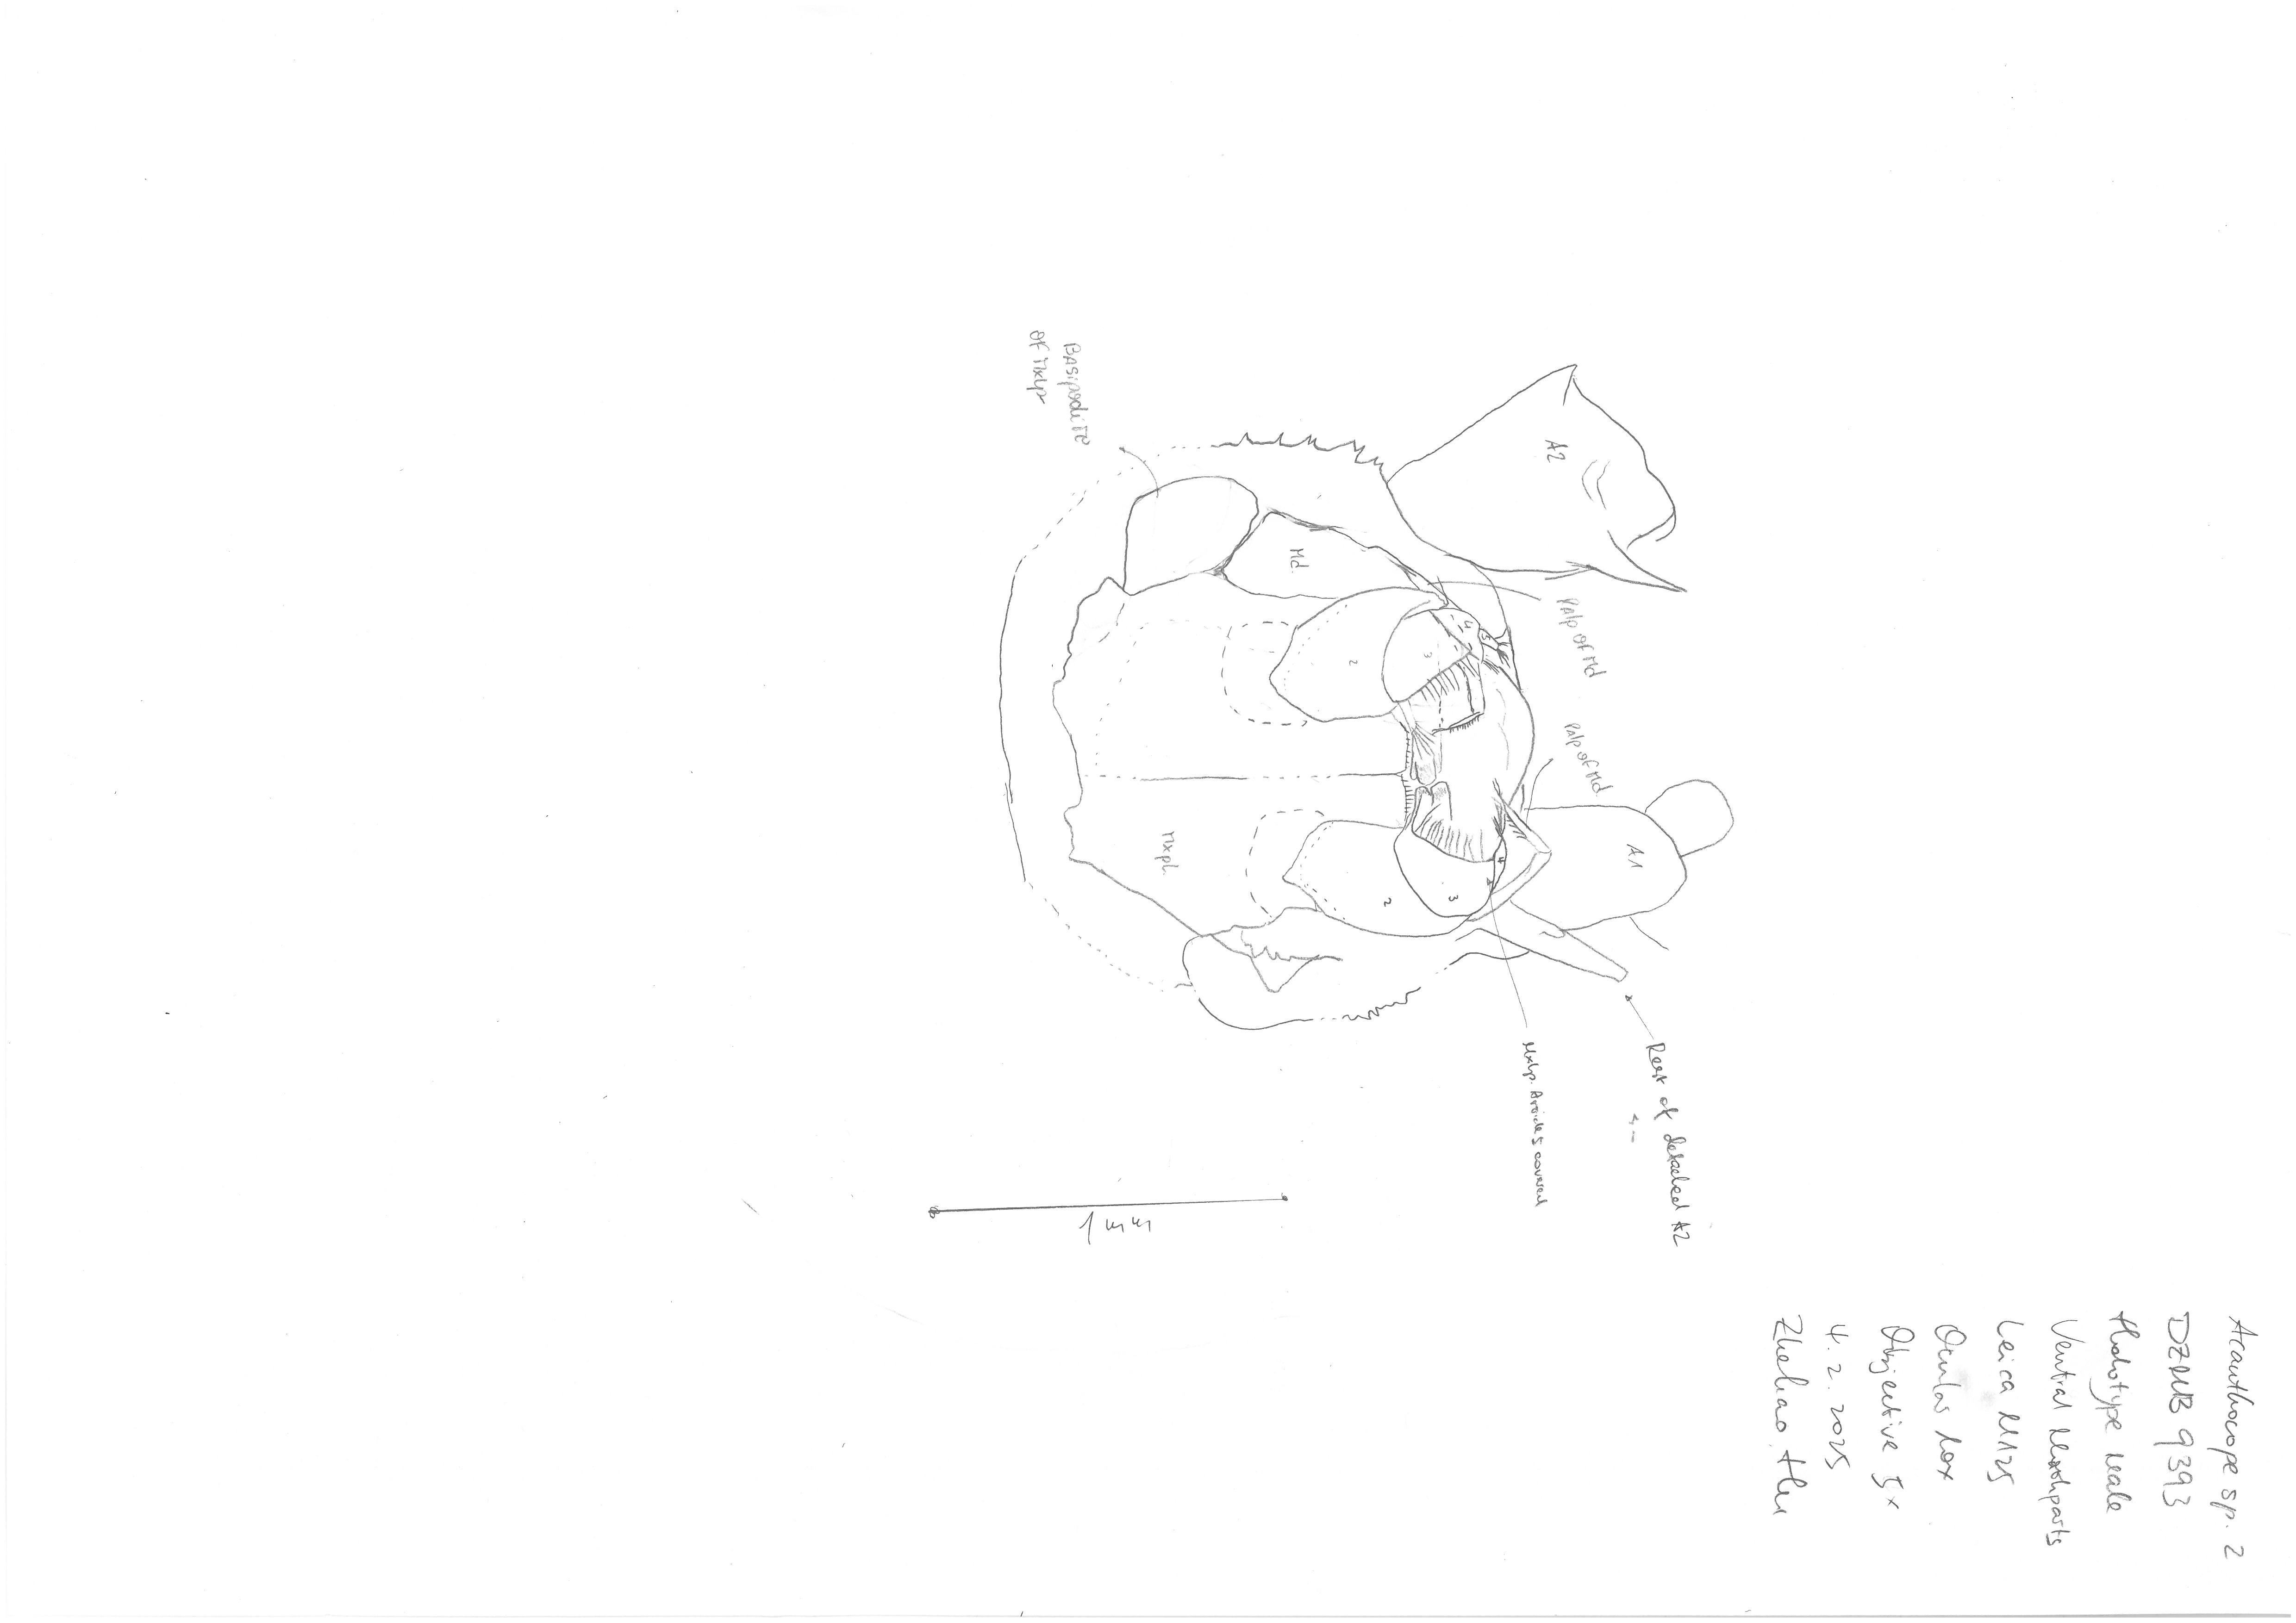 Acanthocope sp. 2
DZMB 9393
Holotype Male
Ventral Mouthparts
Leica M125
Ocular 10x
Objective 5x
4. 2. 2025
Zhehao Hu
Rest of detached A2
A1
Palp of Md
Palp of Md
A2
Mxlp. Article 5 covered
5
4
4
3
3
2
2
Md.
Mxpl.
1 mm
Basipodite
of Mxlp